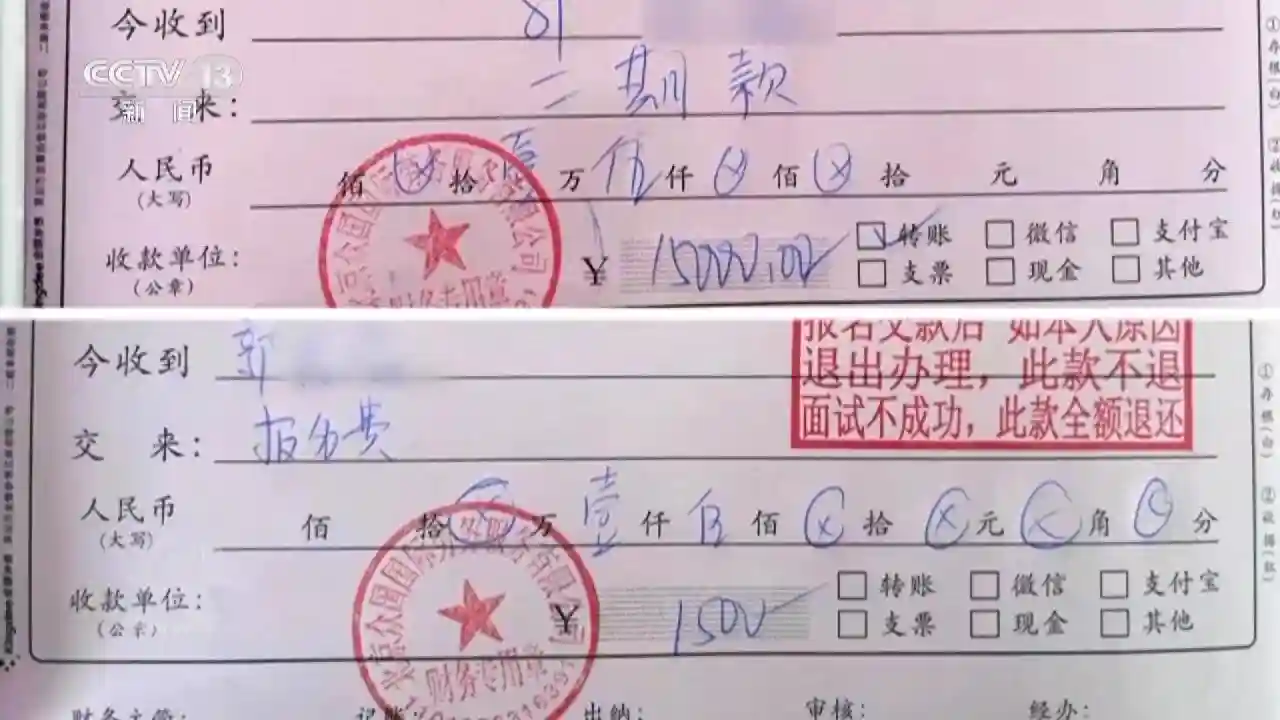 今收到
CCTV 13
新闻
交 来: 二期款
人民币 佰 ⓧ 拾 壹 万 伍 仟 ⓧ 佰 ⓧ 拾 元 角 分
(大写)
收款单位:
(公章)
¥ 15000.00
转账 微信 支付宝
支票 现金 其他
财务专用章
① 存根(白)
② 收据(红)
今收到
报名交款后 如本人原因
退出办理,此款不退
面试不成功,此款全额退还
交 来: 报名费
人民币 佰 拾 ⓧ 万 壹 仟 伍 佰 ⓧ 拾 ⓧ 元 ⓧ 角 分
(大写)
收款单位:
(公章)
¥ 1500
转账 微信 支付宝
支票 现金 其他
北京众国国际
有限公司
财务专用章
① 存根(白)
② 收据(红)
财务主管: 记账: 出纳: 审核: 经办: